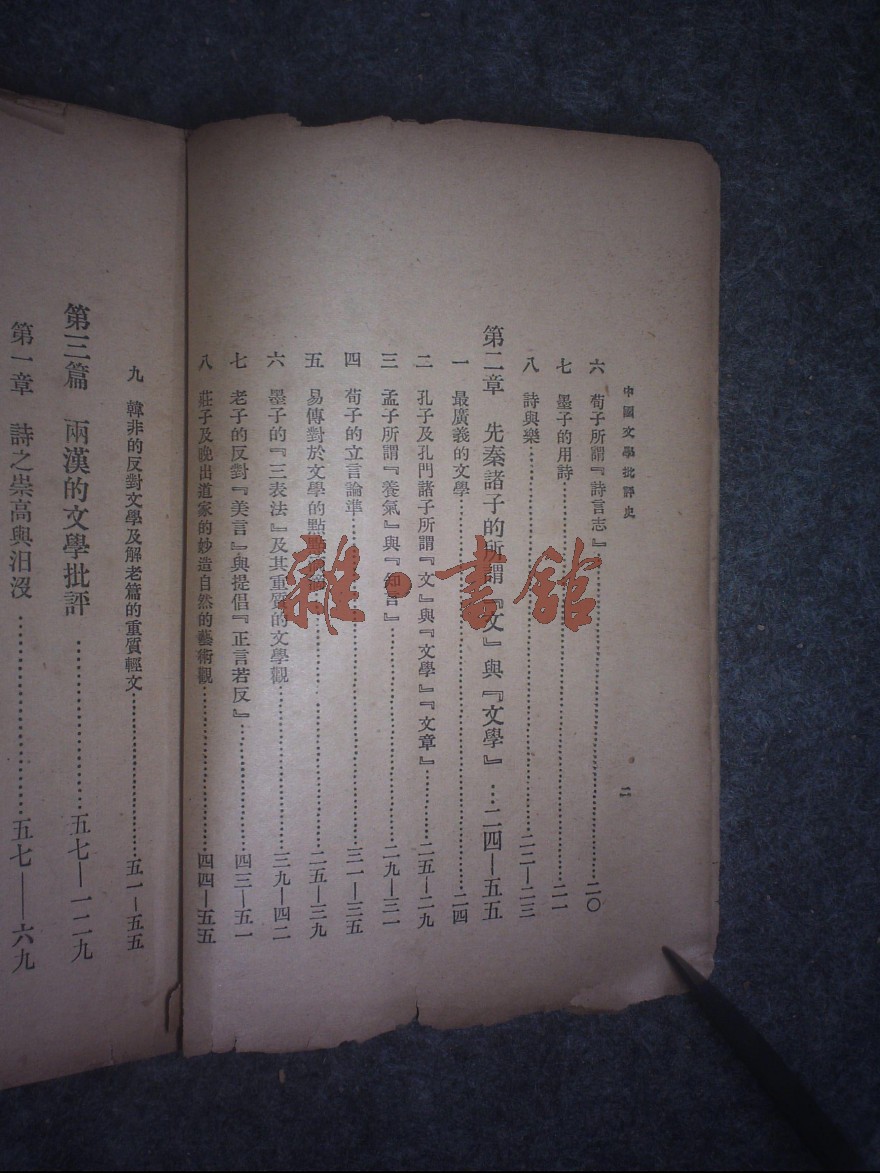 中國文學批評史
二
六　荀子所謂『詩言志』……二〇
七　墨子的用詩……二一
八　詩與樂……二二—二三
第二章　先秦諸子的所謂『文』與『文學』…二四—五五
一　最廣義的文學……二四
二　孔子及孔門諸子所謂『文』與『文學』『文章』……二五—二九
三　孟子所謂『養氣』與『知言』……二九—三一
四　荀子的立言論準……三一—三五
五　易傳對於文學的點……二五—三九
六　墨子的『三表法』及其重質的文學觀……三九—四二
七　老子的反對『美言』與提倡『正言若反』……四三—五一
八　莊子及晚出道家的妙造自然的藝術觀……四四—五五
九　韓非的反對文學及解老篇的重質輕文……五一—五五
第三篇　兩漢的文學批評……五七—一二九
第一章　詩之崇高與汩沒……五七——六九
雜·書館